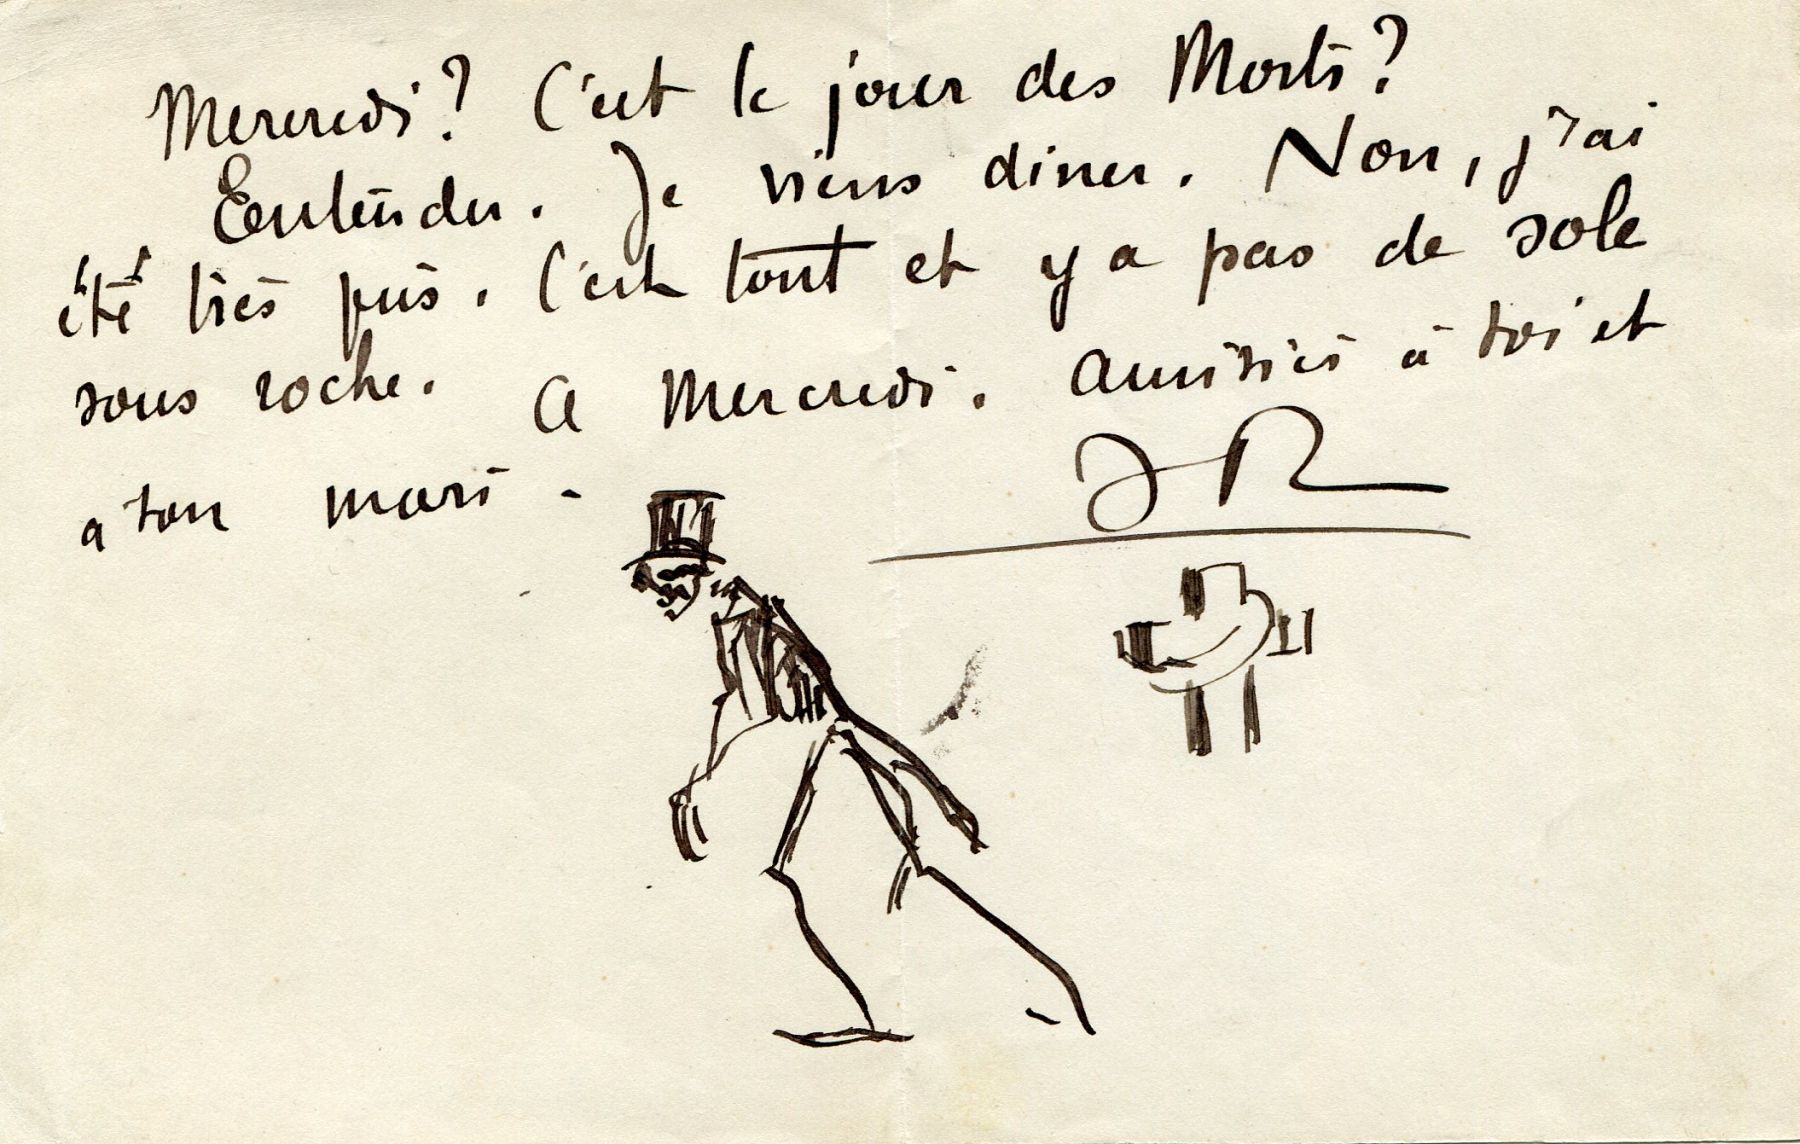 Mercredi? C'est le jour des Morts?
Entendu. Je viens diner. Non, j'ai
été très pris. C'est tout et y a pas de sole
sous roche. A Mercredi. Amitiés à toi et
a ton mari.
JR